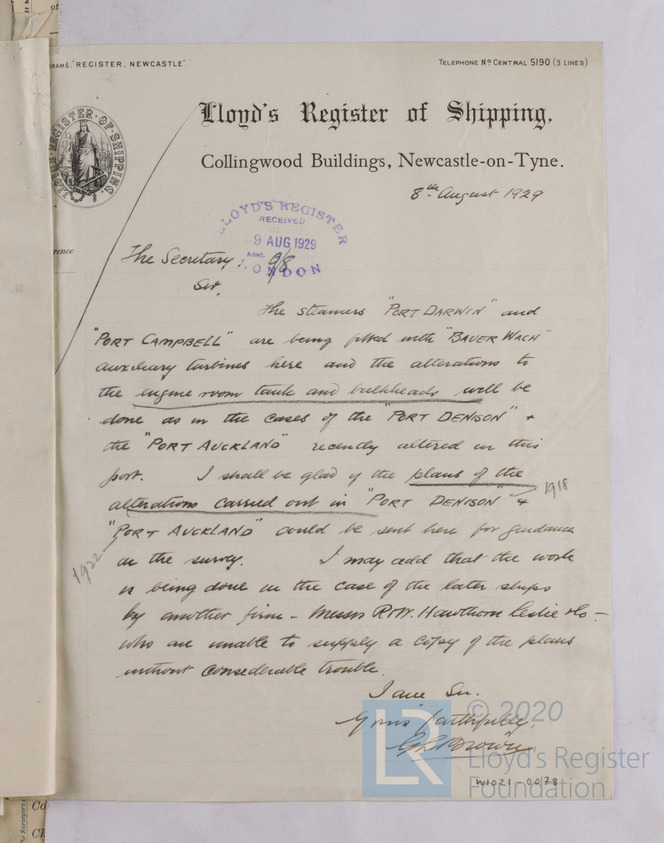 of
RAMS, "REGISTER, NEWCASTLE"
TELEPHONE No CENTRAL 5190 (3 LINES)
LLOYD'S REGISTER OF SHIPPING
Lloyd's Register of Shipping,
Collingwood Buildings, Newcastle-on-Tyne.
8th August 1929
LLOYD'S REGISTER
RECEIVED
9 AUG 1929
Ansd. 9/8
LONDON
rence
The Secretary.
Sir,
The steamers "PORT DARWIN" and
"PORT CAMPBELL" are being fitted with "BAUER WACH"
auxiliary turbines here and the alterations to
the engine room tank and bulkheads will be
done as in the cases of the "PORT DENISON" &
the "PORT AUCKLAND" recently altered in this
port. I shall be glad if the plans of the
alterations carried out in "PORT DENISON" &
1918
"PORT AUCKLAND" could be sent here for guidance
1922
in the survey. I may add that the work
is being done in the case of the later ships
by another firm - Messrs R & W. Hawthorn Leslie & Co -
who are unable to supply a copy of the plans
without considerable trouble.
I am Sir.
Yours faithfully.
Brown
LR
© 2020
Lloyd's Register
Foundation
W1021-0078
Co